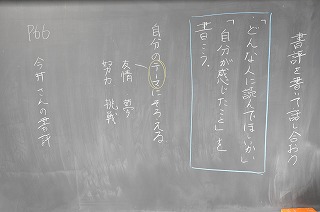 書評を書いて話し合おう
「どんな人に読んでほしいか」
「自分が感じたこと」を
書こう。
自分のテーマにそえる
友情 夢
努力 挑戦
P66
今井さんの書評